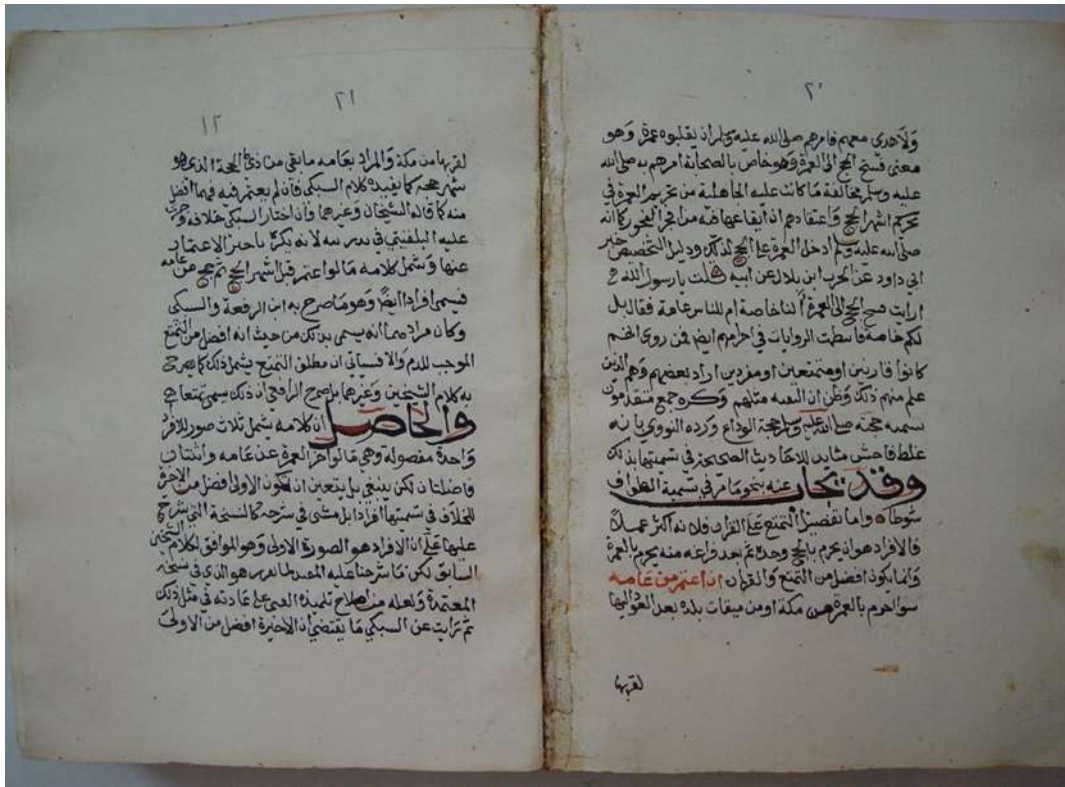 ٢٠
ولا هدى معهم فامرهم صلى الله عليه وسلم ان يقلبوه عمرة وهو
معنى فسخ الحج الى العمرة وهو خاص بالصحابة امرهم به صلى الله
عليه وسلم مخالفة ما كانت عليه الجاهلية من تحريم العمرة في
اشهر الحج واعتقادهم ان ايقاعها فيه من افجر الفجور كما انه
صلى الله عليه وسلم ادخل العمرة على الحج لذلك ودليل التخصيص خبر
ابي داود عن الحرث ابن بلال عن ابيه قلت يا رسول الله
ارايت فسخ الحج الى العمرة النا خاصة ام للناس عامة فقال بل
لكم خاصة فاسطت الروايات في احرامهم ايضا فمن روى انهم
كانوا قارنين او متمتعين او مفردين اراد بعضهم وهم الذين
علم منهم ذلك وظن ان البقية مثلهم وكره جمع متقدمون
تسمية حجته صلى الله عليه وسلم حجة الوداع ورده النووي بانه
غلط فاحش منابذ للاحاديث الصحيحة في تسميتها بذلك
وقد يجاب عنه بنحو ما مر في تسمية الطواف
شوطا واما تفضيل التمتع على القران فلانه اكثر عملا
فالافراد هو ان يحرم بالحج وحده ثم بعد فراغه منه يحرم بالعمرة
وانما يكون افضل من التمتع والقران ان اعتمر من عامه
سوا احرم بالعمرة من مكة او من ميقات بلده بعد العود اليها
لقربها
٢١
١٢
لقربها من مكة والمراد بعامه ما بقي من ذي الحجة الذي هو
شهر حجه كما يفيده كلام السبكي فان لم يعتمر فيه فهما افضل
منه كما قاله الشيخان وغيرهما وان اختار السبكي خلافه وجرى
عليه البلقيني في تدريبه لانه يكره تاخير الاعتمار
عنها وشمل كلامه ما لو اعتمر قبل اشهر الحج ثم حج من عامه
فيسمى افرادا ايضا وهو ما صرح به ابن الرفعة والسبكي
وكان مرادهما انه يسمى بذلك من حيث انه افضل من التمتع
الموجب للدم والا فسياتي ان مطلق التمتع يشمل ذلك كما يصرح
به كلام الشيخين وغيرهما بل صرح الرافعي ان ذلك يسمى تمتعا
والحاصل ان كلامه يشمل ثلاث صور للافراد
واحدة مفضولة وهي ما لو اخر العمرة عن عامه واثنتان
فاضلتان لكن ينبغي بل يتعين ان تكون الاولى افضل من الاخيرة
للخلاف في تسميتها افرادا بل مشى في شرحه كالنسخة التي شرح
عليها على ان الافراد هو الصورة الاولى وهو الموافق لكلام الشيخين
السابق لكن ما شرحنا عليه هو الذي في نسخه
المعتمدة ولعله من اصلاح تلميذه الفتى على عادته في مثل ذلك
ثم رايت عن السبكي ما يقتضي ان الاخيرة افضل من الاولى